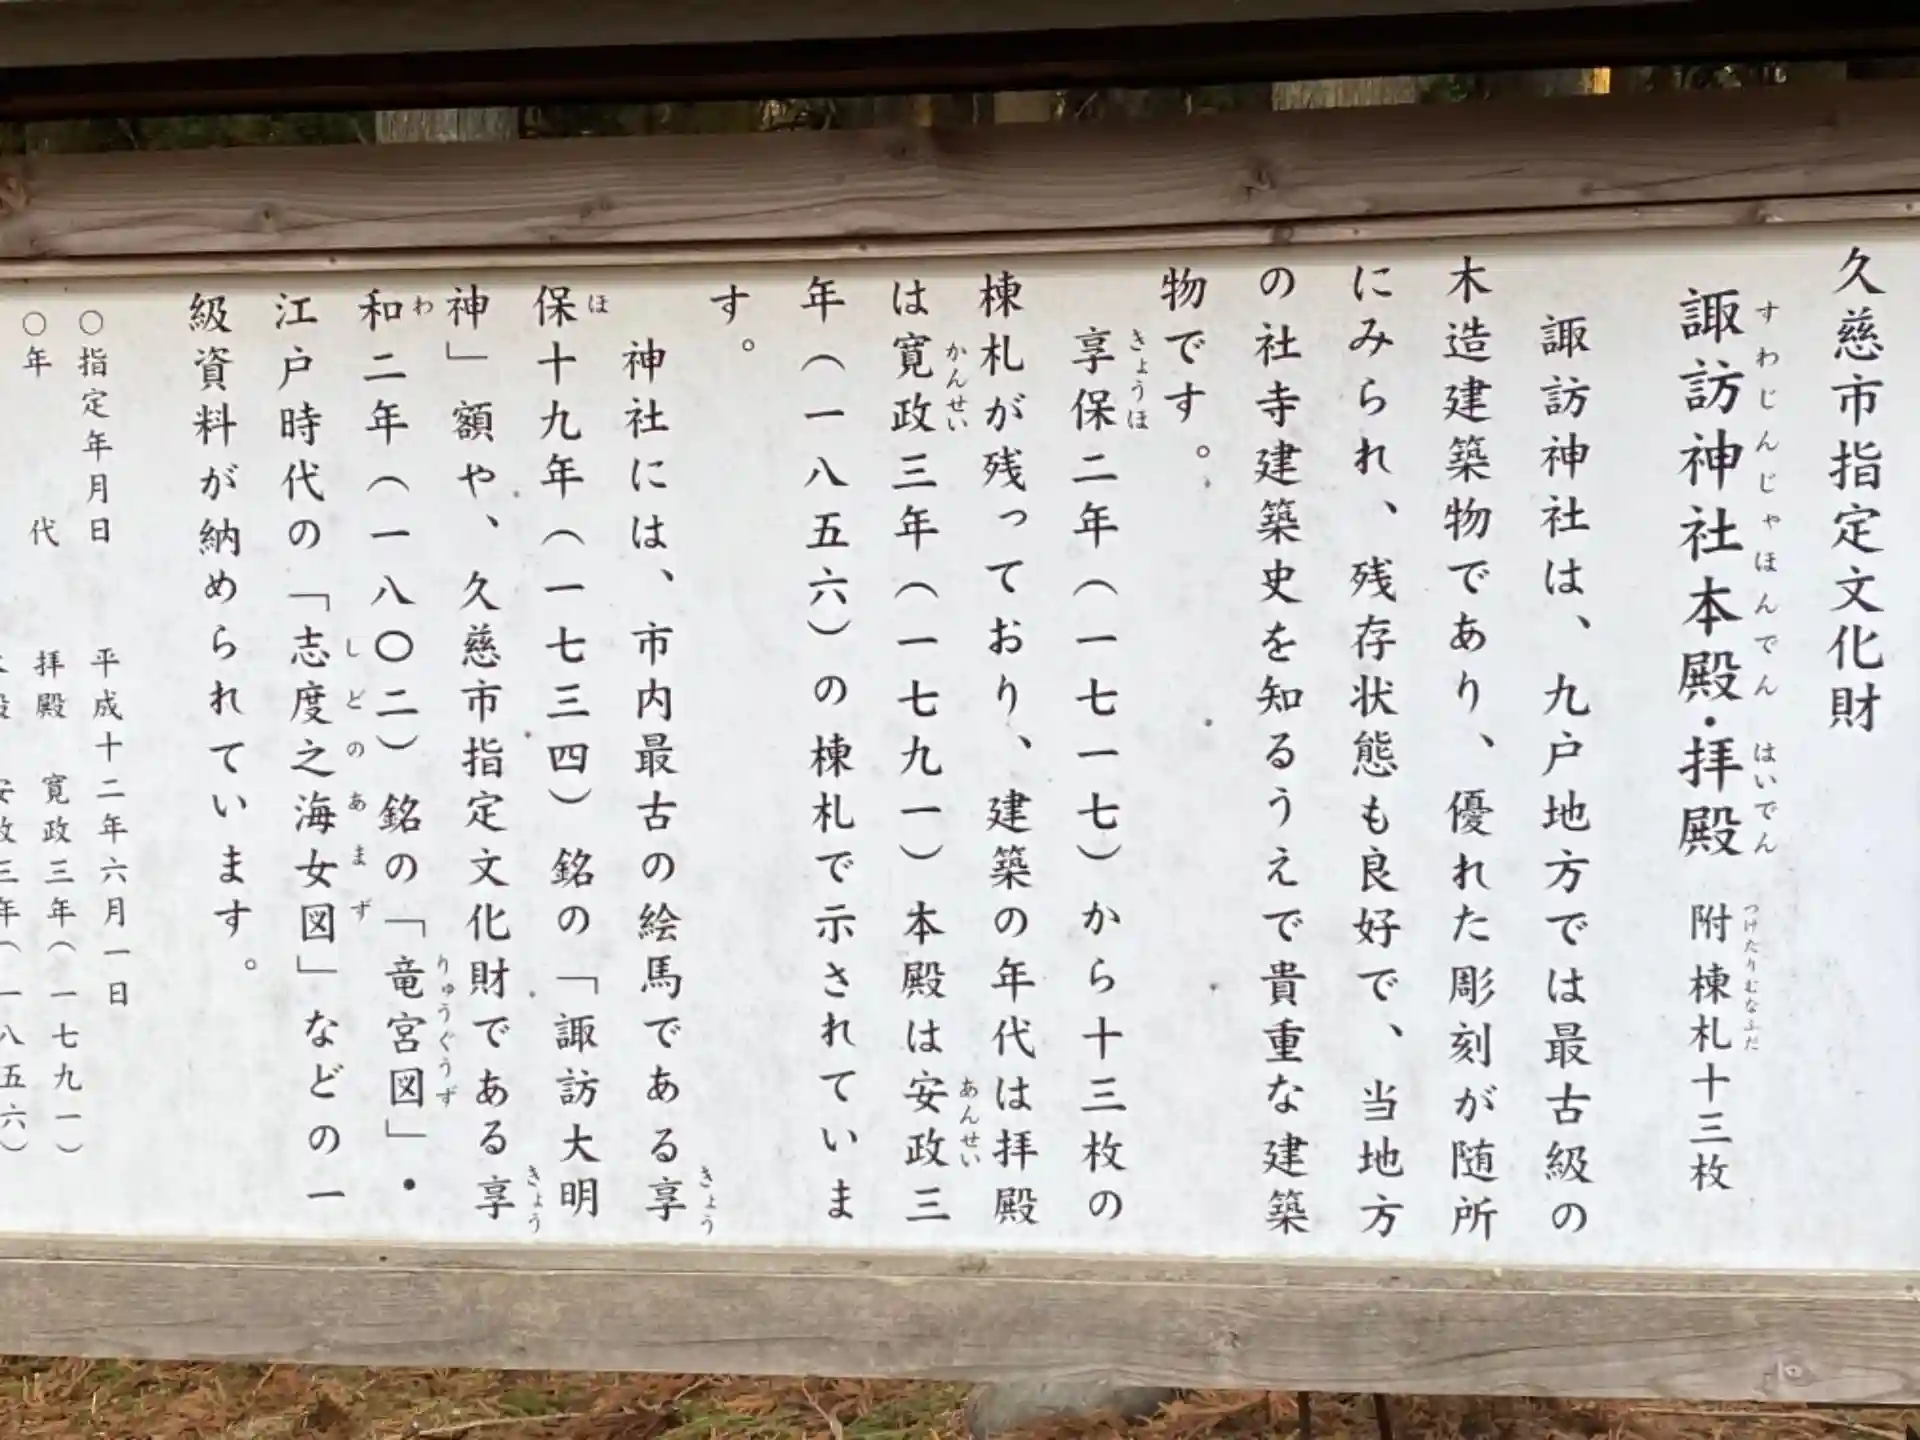 久慈市指定文化財
諏訪神社本殿・拝殿 附棟札十三枚
すわじんじゃほんでん はいでん つけたりむなふだ
諏訪神社は、九戸地方では最古級の
木造建築物であり、優れた彫刻が随所
にみられ、残存状態も良好で、当地方
の社寺建築史を知るうえで貴重な建築
物です。
享保二年(一七一七)から十三枚の
きょうほ
棟札が残っており、建築の年代は拝殿
は寛政三年(一七九一)本殿は安政三
かんせい あんせい
年(一八五六)の棟札で示されていま
す。
神社には、市内最古の絵馬である享
きょう
保十九年(一七三四)銘の「諏訪大明
ほ
神」額や、久慈市指定文化財である享
きょう
和二年(一八〇二)銘の「竜宮図」・
わ りゅうぐうず
江戸時代の「志度之海女図」などの一
しどのあまず
級資料が納められています。
〇指定年月日 平成十二年六月一日
〇年 代 拝殿 寛政三年(一七九一)
本殿 安政三年(一八五六)